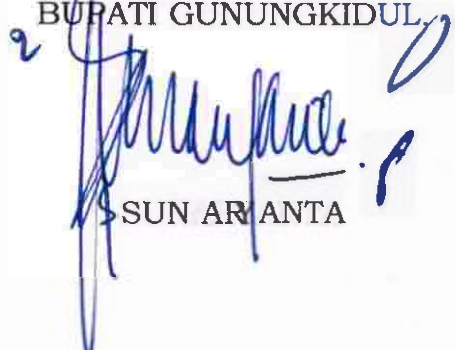 BUPATI GUNUNGKIDUL,
SUNARYANTA